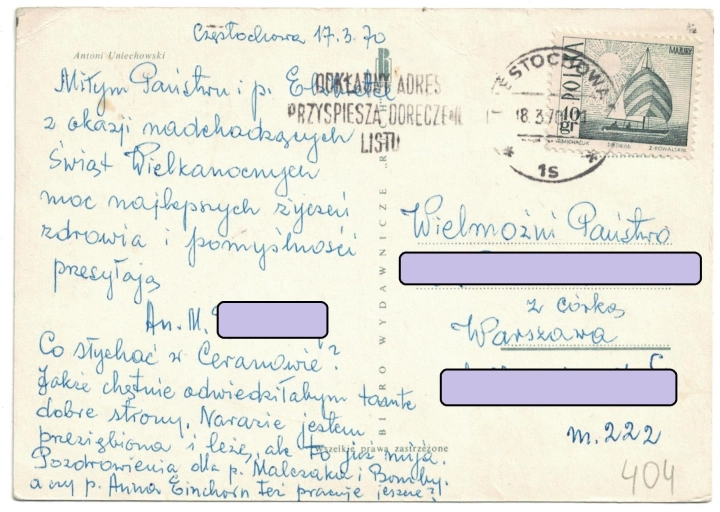 Częstochowa 17.3.70
Antoni Uniechowski
Miłym Państwu i p. Elżbietce
z okazji nadchodzących
Świąt Wielkanocnych
moc najlepszych życzeń
zdrowia i pomyślności
przesyłają
An. M.
Co słychać w Ceranowie?
Jakże chętnie odwiedziłabym tamte
dobre strony. Narazie jestem
przeziębiona i leżę, ale to już mija.
Pozdrowienia dla p. Malczaka i Bomby.
a czy p. Anna Einchorn też pracuje jeszcze?
DOKŁADNY ADRES
PRZYSPIESZA DORĘCZENIE
LISTU
BIURO WYDAWNICZE „R
Wszelkie prawa zastrzeżone
CZĘSTOCHOWA 1
18.3.70
1s
POLSKA
MAZURY
10 gr
Z. KOWALSKI
Wielmożni Państwo
z córką
Warszawa
m. 222
404